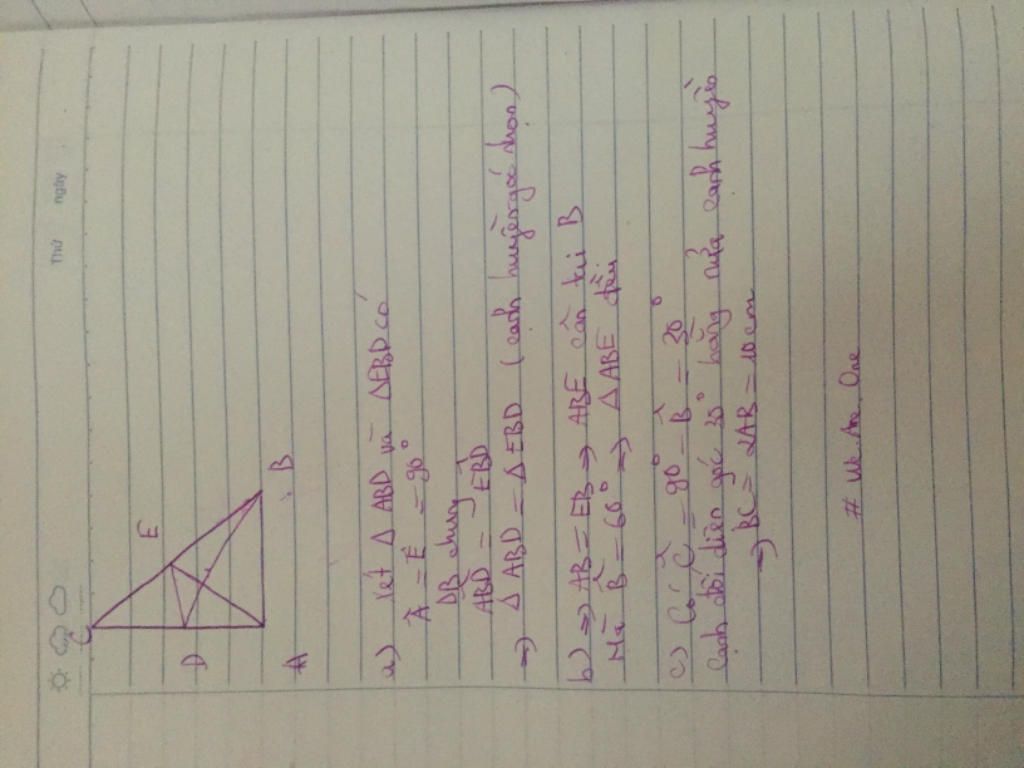 Thứ
ngày
C
E
D
B
A
a) Xét Δ ABD và ΔEBD có
Â = Ê = 90°
DB chung
ABD̂ = EBD̂
=> Δ ABD = Δ EBD (cạnh huyền góc nhọn)
b) => AB = EB => ABE cân tại B
Mà B̂ = 60° => Δ ABE đều
c) Có Ĉ = 90° - B̂ = 30°
Cạnh đối diện góc 30° bằng nửa cạnh huyền
=> BC = 2AB = 10 cm